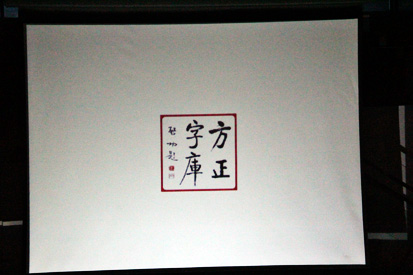 方正
字庫
啓功題